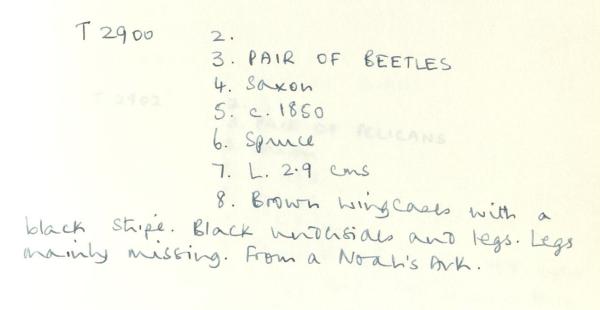 T 2900 2.
3. PAIR OF BEETLES
4. Saxon
5. c. 1850
6. Spruce
7. L. 2.9 cms
8. Brown wingcases with a
black stripe. Black undersides and legs. Legs
mainly missing. From a Noah's Ark.
T 2902
PAIR OF PELICANS